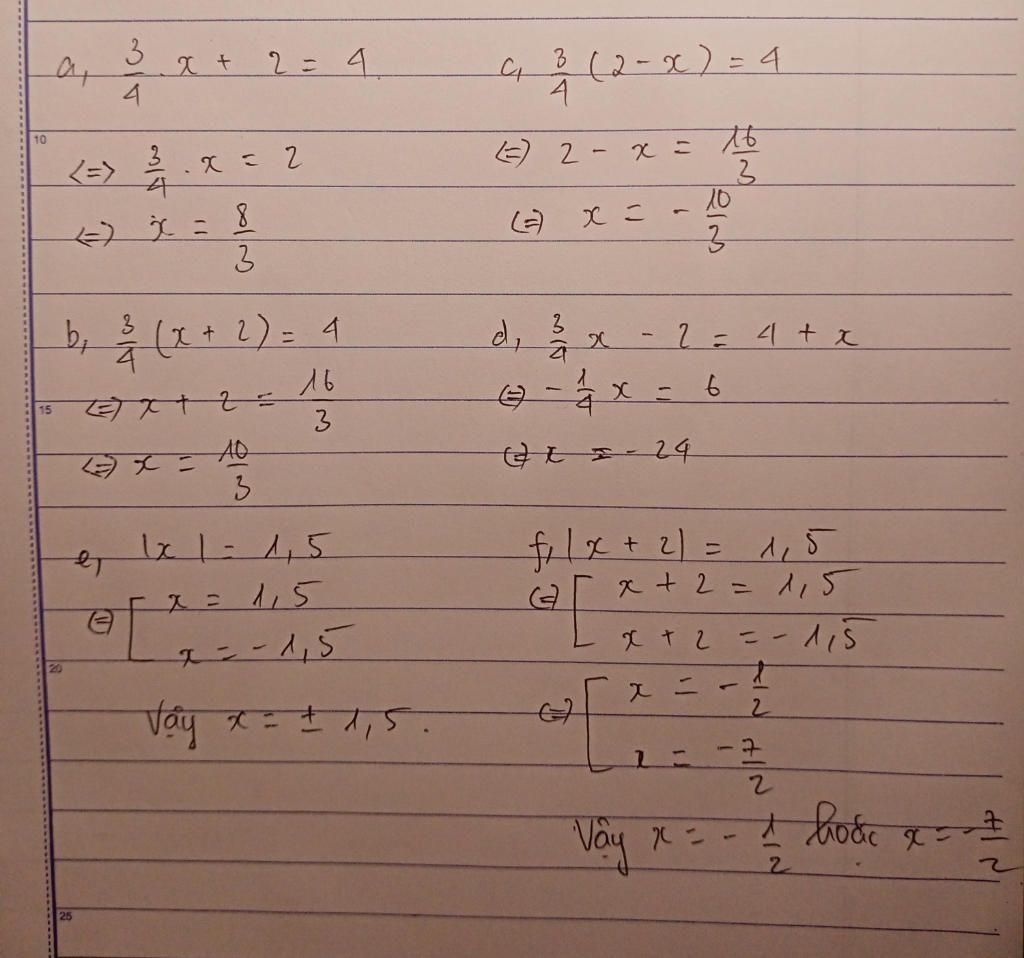 a, 3/4 . x + 2 = 4
<=> 3/4 . x = 2
<=> x = 8/3
b, 3/4 (x + 2) = 4
<=> x + 2 = 16/3
<=> x = 10/3
c, 3/4 (2 - x) = 4
<=> 2 - x = 16/3
<=> x = - 10/3
d, 3/4 x - 2 = 4 + x
<=> - 1/4 x = 6
<=> x = - 24
e, |x| = 1,5
<=> [ x = 1,5
x = - 1,5
Vậy x = ± 1,5.
f, |x + 2| = 1,5
<=> [ x + 2 = 1,5
x + 2 = - 1,5
<=> [ x = - 1/2
x = - 7/2
Vậy x = - 1/2 hoặc x = - 7/2
10
15
20
25